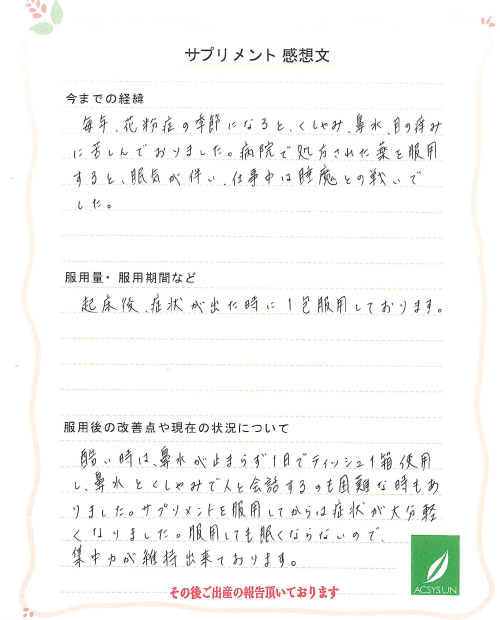 サプリメント 感想文
今までの経緯
毎年、花粉症の季節になると、くしゃみ、鼻水、目の痒み
に苦しんでおりました。病院で処方された薬を服用
すると、眠気が伴い、仕事中は睡魔との戦いで
した。
服用量・服用期間など
起床後、症状が出た時に1包服用しております。
服用後の改善点や現在の状況について
酷い時は、鼻水が止まらず1日でティッシュ1箱使用
し、鼻水とくしゃみで人と会話するのも困難な時もあ
りました。サプリメントを服用してからは症状が大分軽
くなりました。服用しても眠くならないので、
集中力が維持出来ております。
その後ご出産の報告頂いております
ACSYSUN